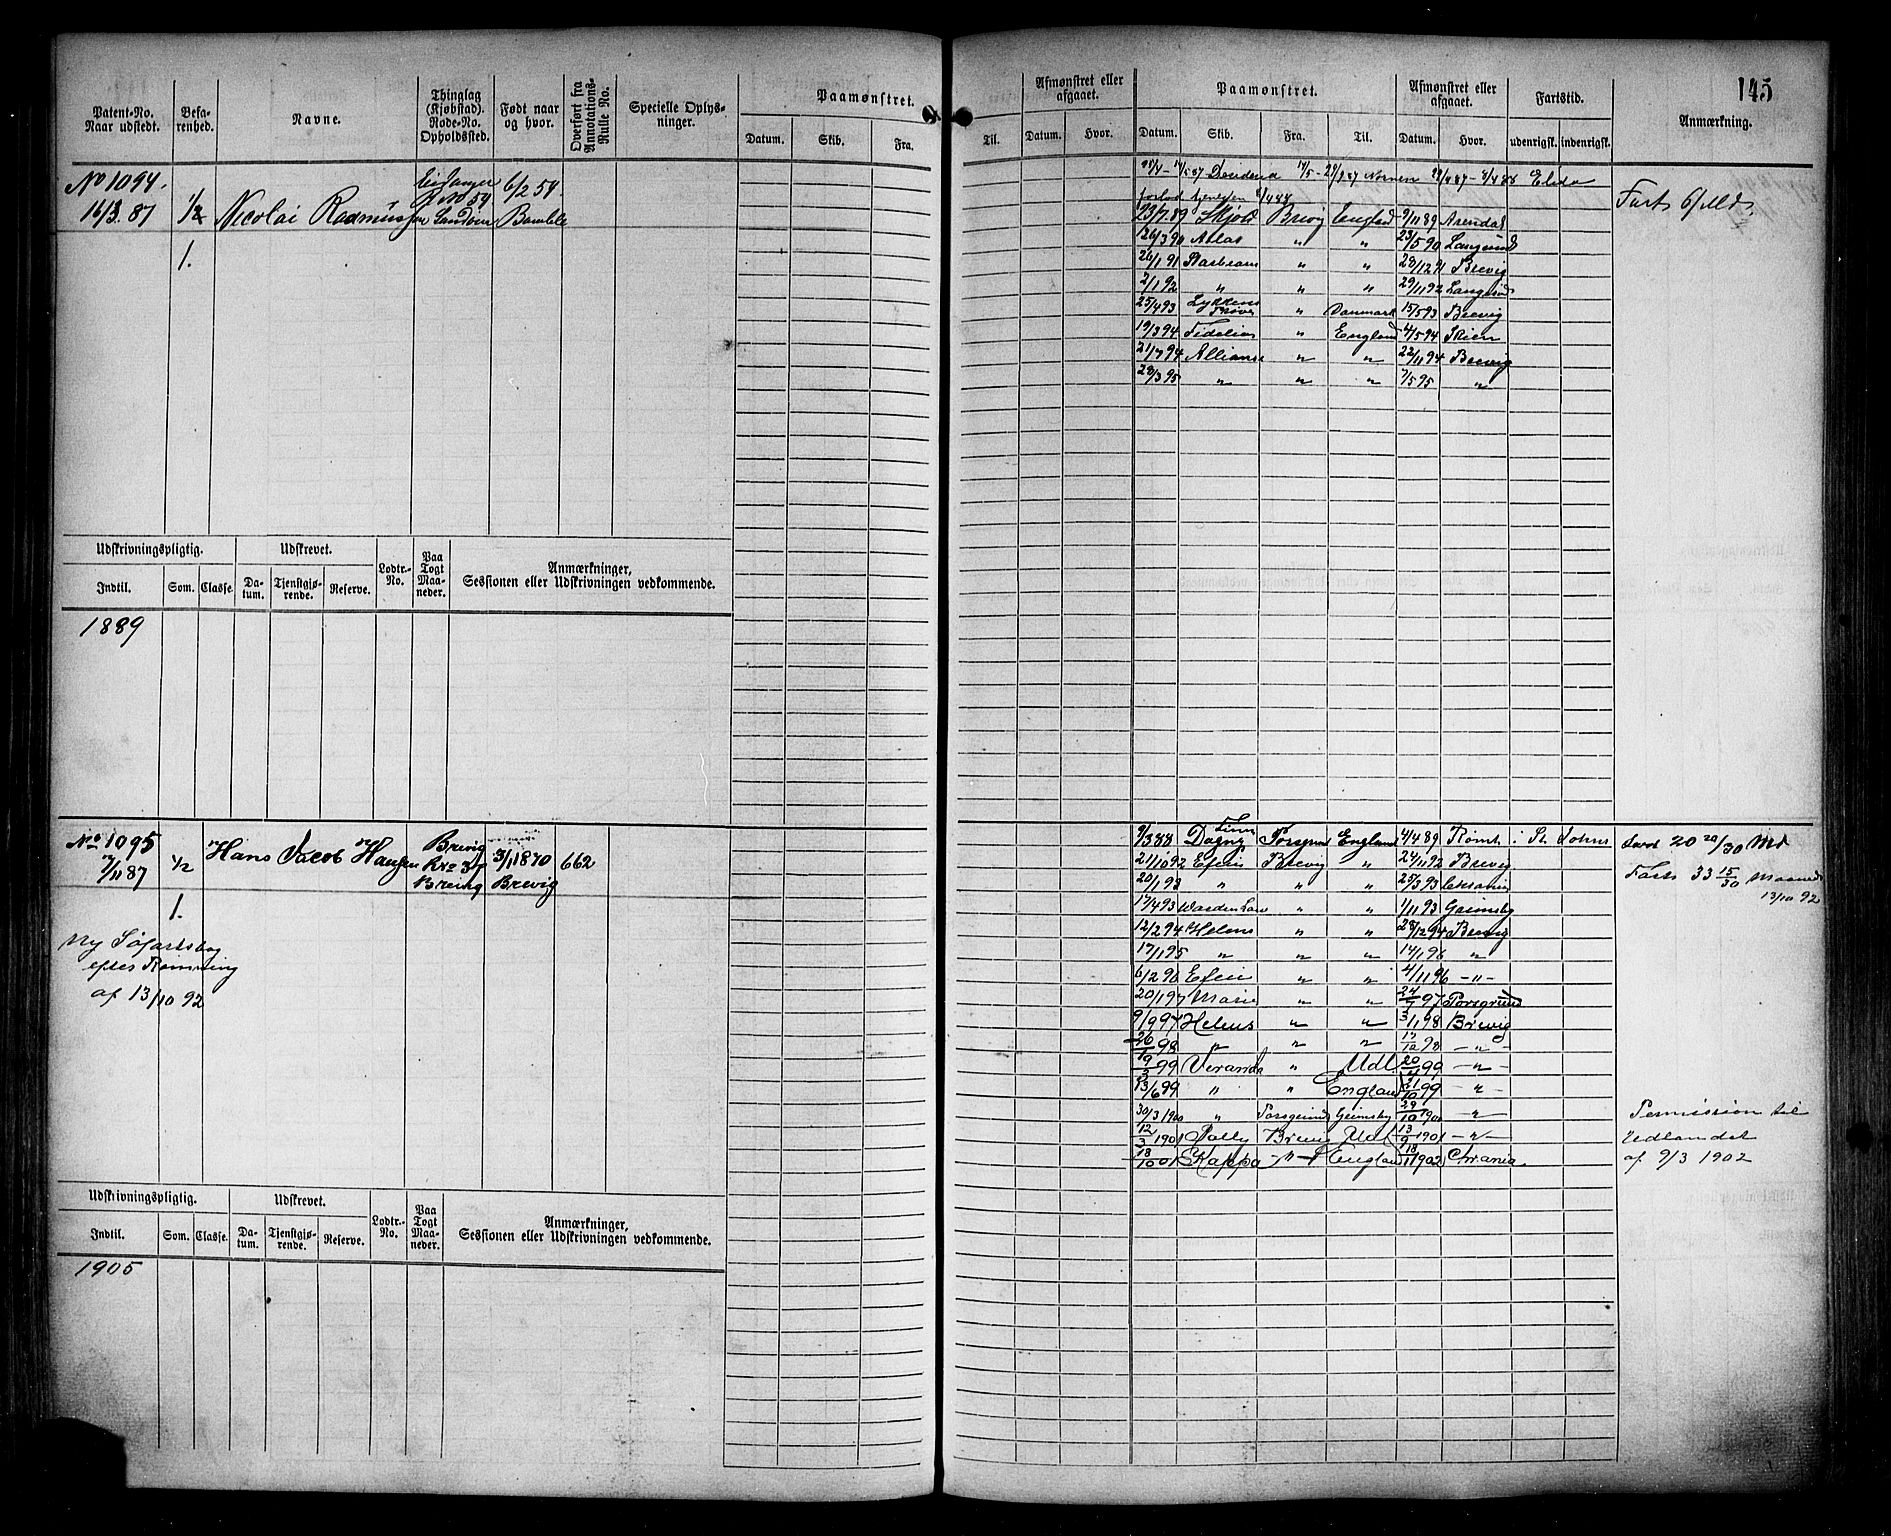 145
Patent-No. Naar udstedt.
Befarenhed.
Navne.
Thinglag (Kjøbstad). Rode-No. Opholdssted.
Født naar og hvor.
Overført fra Annotations-Rulle No.
Specielle Oplysninger.
Paamønstret.
Datum. Skib. Fra. Til.
Afmønstret eller afgaaet.
Datum. Hvor.
Paamønstret.
Datum. Skib. Fra. Til.
Afmønstret eller afgaaet.
Datum. Hvor.
Fartstid.
udenrigsk. indenrigsk.
Anmærkning.
No 1094.
16/3. 87 1/2 Nicolai Rasmussen
1.
Eidanger
R No 59
6/2 54
Bamble
Fart 6 Md.
23/7 89 Skjold Brevig England 9/11 89 Arendal
26/3 90 Atlas " " 23/5 90 Langesund
26/1 91 " " 28/12 91 Brevig
2/1 92 " " " 29/11 92
25/4 93 Lykkens Prøve " Danmark 15/5 93 Brevig
19/3 94 " England 4/5 94 Skien
21/7 94 Alliance " " 22/11 94 Brevig
28/3 95 " " " 7/5 95 "
Udskrivningspligtig. Udskrevet. Lodtr.-No. Paa Togt Maaneder. Anmærkninger, Sessionen eller Udskrivningen vedkommende.
Indtil. Som. Classe. Datum. Tjenstgjørende. Reserve.
1889
No 1095
7/11 87 1/2 Hans Jacob Hansen
1.
Brevig
Brevig
3/1 1870
Brevig
662
Ny Søfartsbog
efter Rømning
af 13/10 92
9/3 88 Dagny Porsgrund England 4/4 89 Rømt i St Johns
21/10 92 Brevig " 24/11 92 Brevig
20/1 93 " " " 25/3 93
17/4 93 " " 1/11 93 Grimsby
12/2 94 Helene " " 28/12 94 Brevig
17/1 95 " " " 14/1 96 "
6/2 96 " " 4/11 96 - " -
20/1 97 Marie " " 24/7 97 Porsgrund
9/9 97 Helene " " 3/1 98 Brevig
26/1 98 " " " 17/12 98 - " -
9/3 99 Veranda " Udl 20/4 99 - " -
13/6 99 " " England 21/10 99 - " -
30/3 1900 " Porsgrund Grimsby 29/10 1900 - " -
12/3 1901 Polly Brevig Udl 13/9 1901 - " -
18/10 01 Kappa - " - England 18/1 1902 Chrania
20 20/30 Md
Fart 33 15/30 Maaneder
13/10 92
Permission til
Udlandet
af 9/3 1902
Udskrivningspligtig. Udskrevet. Lodtr.-No. Paa Togt Maaneder. Anmærkninger, Sessionen eller Udskrivningen vedkommende.
Indtil. Som. Classe. Datum. Tjenstgjørende. Reserve.
1905